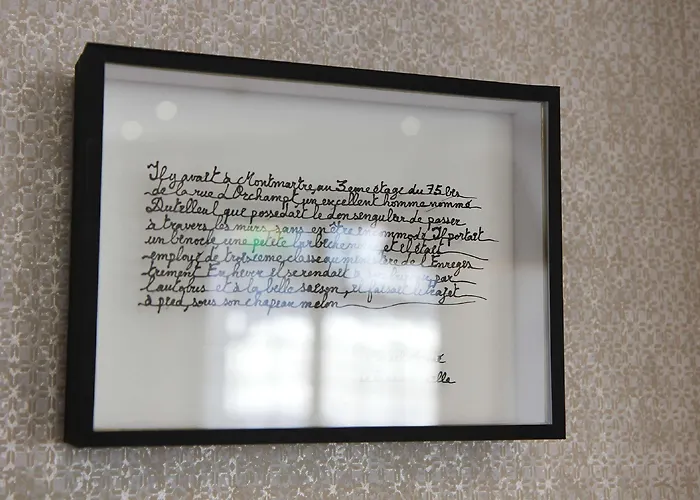 Il y avait à Montmartre, au 3eme étage du 75 bis
de la rue d'Orchampt, un excellent homme nommé
Dutilleul que possedait le don sengular de passer
à travers les murs, sans en être incommodé. Il portait
un binocle, une petite barbiche et il était
employé de troisieme classe au ministère de l'Enregis
trement. En hever il se rendait à par
l'autobus et à la bella saison, il faisait le trajet
à pied, sous son chapeau melon